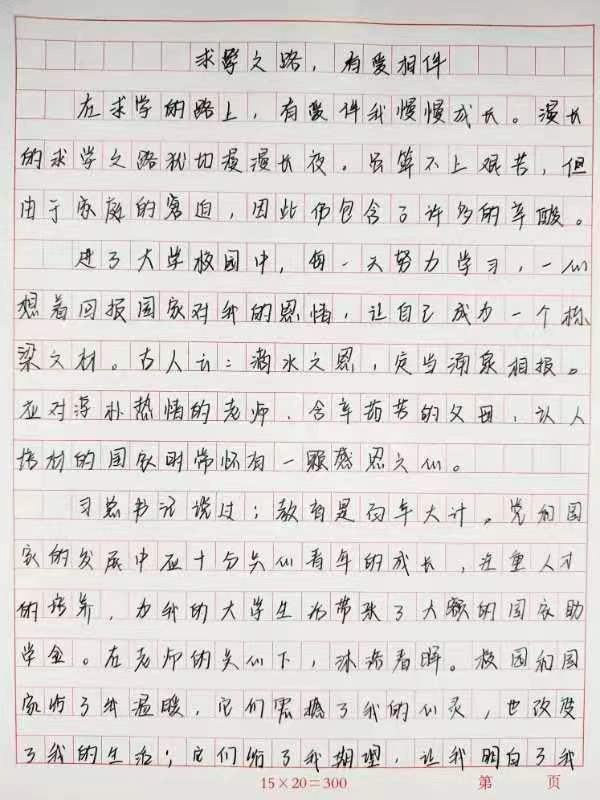 求学之路，有爱相伴
在求学的路上，有爱伴我慢慢成长。漫长
的求学之路犹如漫漫长夜。虽算不上艰苦，但
由于家庭的窘迫，因此仍包含了许多的辛酸。
进了大学校园中，每一天努力学习，一心
想着回报国家对我的恩情，让自己成为一个栋
梁之材。古人云：滴水之恩，定当涌泉相报。
应对淳朴热情的老师，含辛茹苦的父母，认人
的国家时常怀有一颗感恩之心。
习总书记说过；教育是百年大计。党和国
家的发展中应十分关心青年的成长，注重人才
的培养，为我的大学生活带来了大额的国家助
学金。在老师的关心下，沐浴春晖。校园和国
家给了我温暖，它们震撼了我的心灵，也改变
了我的生活；它们给了我期望，让我明白了我
15×20=300
第 页